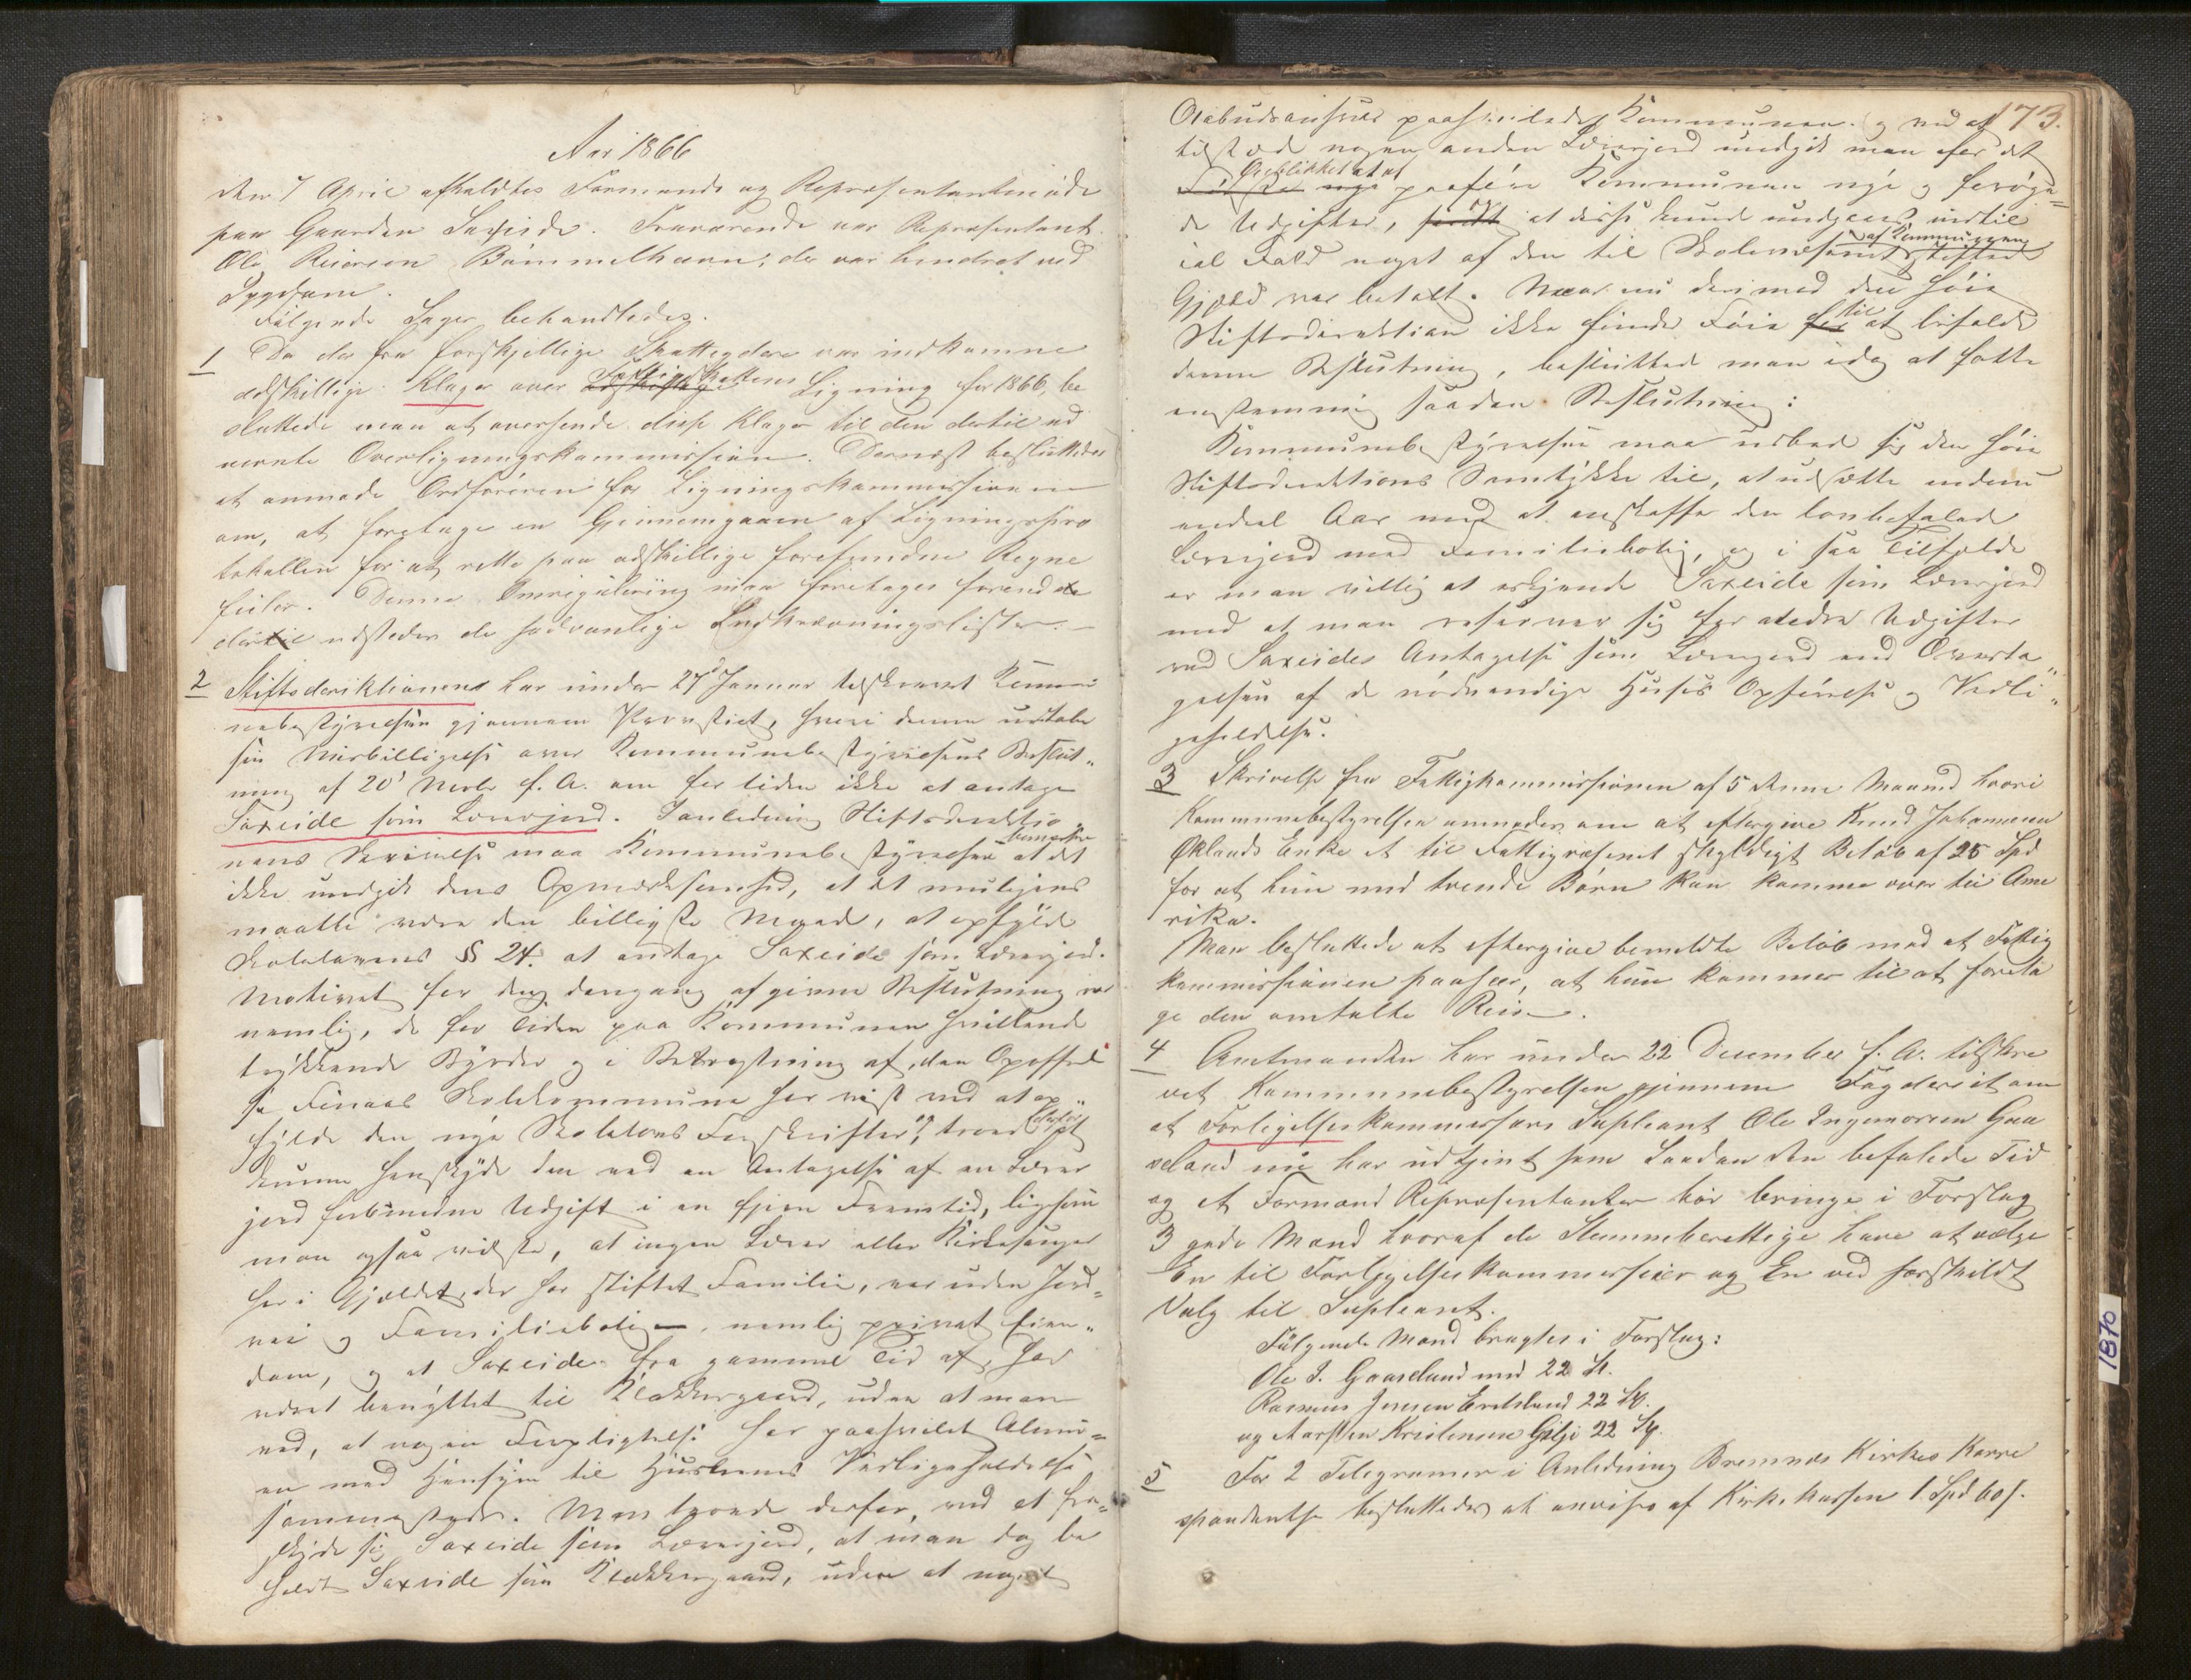 Aar 1866
den 7 April afholdtes Formands og Repræsentantmøde
paa Gaarden Saxeide. Fraværende var Repræsentant
Ole Reiersen Bømmelhavn; der var hindret ved
Sygdom.
Følgende Sager behandledes.
1 Da der fra forskjellige Skatteydere var indkomne
adskillige Klager over Fattigskattens Ligning for 1866, be
sluttede man at oversende disse Klager til den dertil ud
nævnte Overligningskommission. Dernæst besluttedes
at anmode Ordføreren for Ligningskommissionen
om, at foretage en Gjennemgaaen af Ligningspro
tokollen for at rette paa adskillige forefundne Regne
feiler. Denne Omregulering maa foretages forend de
dertil udstedes de sædvanlige Indkrævningslister.-
2 Stiftsdirektionen har under 27d Januar tilskrevet Kommu
nebestyrelsen gjennem Provstiet, hvori denne udtaler
sin Misbilligelse over Kommunebestyrelsens Beslut„
ning af 20' Novbr f. A. om for tiden ikke at antage
Saxeide som Lærerjord. I Anledning Stiftsdirektio„
nens Skrivelse maa Kommunebestyrelsen bemærke at det
ikke undgik dens Opmærksomhed, at det muligens
maatte være den billigste Maade, at opfylde
Skolelovens § 24. at antage Saxeide som Lærerjord.
Motivet for den dengang afgivne Beslutning var
nemlig, de for Tiden paa Kommunen hvilende
trykkende Byrder og i Betragtning af, den Opoffrel
se Finaas Skolekommune har vist ved at op„
fylde den nye Skolelovs Forskrifter, og troede derfor at
kunne henskyde den ved en Antagelse af en Lærer
jord forbundne Udgift i en fjern Fremtid, ligesom
man ogsaa vidste, at ingen Lærer eller Kirkesanger
her i Gjældet, der har stiftet Familie, var uden Jord„
vei og Familiebolig, nemlig privat Eien„
dom, og at Saxeide fra gammel Tid af, har
været benyttet til Klokkergaard, uden at man
ved, at nogen Forpligtelse har paahvilet Almu=
en med Hensyn til Husenes Vedligeholdelse
sammesteds. Man troede derfor, ved at fra„
skyde sig Saxeide som Lærerjord, at man dog be
holdt Saxeide som Klokkergaard, uden at noget
173.
Aabudsansvar paahvilede Kommunen og ved at
tilstede nogen anden Lærerjord undgik man for det
Øieblikket at at paaføre Kommunen nye og forøge=
de Udgifter, og at disse kunde undgaaes indtil
ial Fald noget af den til Skolevæsenet af Kommunen stiftede
Gjæld var betalt. Naar nu derimod den høie
Stiftsdirektion ikke finder Føie til at bifalde
denne Beslutning, besluttede man idag at fatte
enstemmig saadan Beslutning:
Kommunebestyrelsen maa udbede sig den høie
Stiftsdirektions Samtykke til, at udsætte endnu
endeel Aar med at anskaffe den lovbefalede
Lærerjord med Familiebolig, og i saa Tilfælde
er man villig at erkjende Saxeide som Lærerjord
med at man reserverer sig for Udgifter
ved Saxeides Antagelse som Lærerjord ved Overta„
gelsen af de nødvendige Huses Opførelse og Vedli„
geholdelse.
3 Skrivelse fra Fattigkommissionen af 5 denne Maaned hvori
Kommunebestyrelsen anmodes om at eftergive Knud Johannesen
Øklands Enke et til Fattigvæsenet skyldigt Beløb af 25 Spd
for at hun med trende Børn kan komme over til Ame
rika.
Man besluttede at eftergive bemeldte Beløb med at Fattig
kommissionen paaseer, at hun kommer til at foreta
ge den omtalte Reise.
4 Amtmanden har under 22 December f. A. tilskre
vet Kommunebestyrelsen gjennem Fogderiet om
at Forligelseskommissair Supleant Ole Ingemorsen Gaa
seland nu har udtjent som Saadan den befalede Tid
og at Formænd Repræsentanter bør bringe i Forslag
3 gode Mænd hvoraf de Stemmeberettige have at vælge
En til Forligelseskommissair og En ved særskildt
Valg til Supleant.
Følgende Mænd bragtes i Forslag:
Ole I. Gaaseland med 22 St.
Rasmus Jensen Eidesland 22 St.
og Karsten Kristensen Gilje 22 St.
5 For 2 Telegramer i Anledning Bremnæs Kirkes Korre
spondentse besluttedes at anvises af Kirkekassen 1 Spd 60 s.
1870